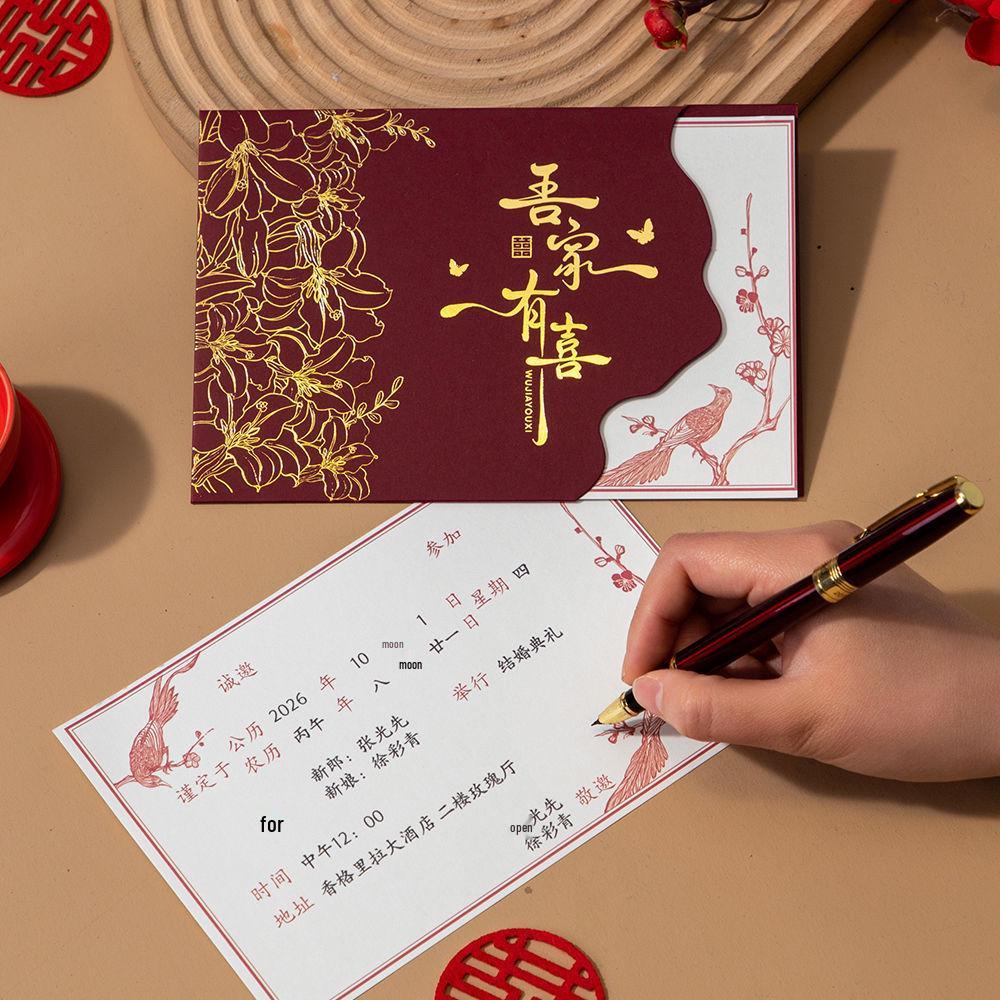 吾家有喜
囍
WUJIAYOUXI
诚邀
参加
谨定于
公历 2026 年 10 moon 1 日 星期 四
农历 丙午 年 八 moon 廿一 日
新郎：张光先
新娘：徐彩青
举行 结婚典礼
for
时间 中午12：00
地址 香格里拉大酒店 二楼玫瑰厅
open 光先
徐彩青
敬邀